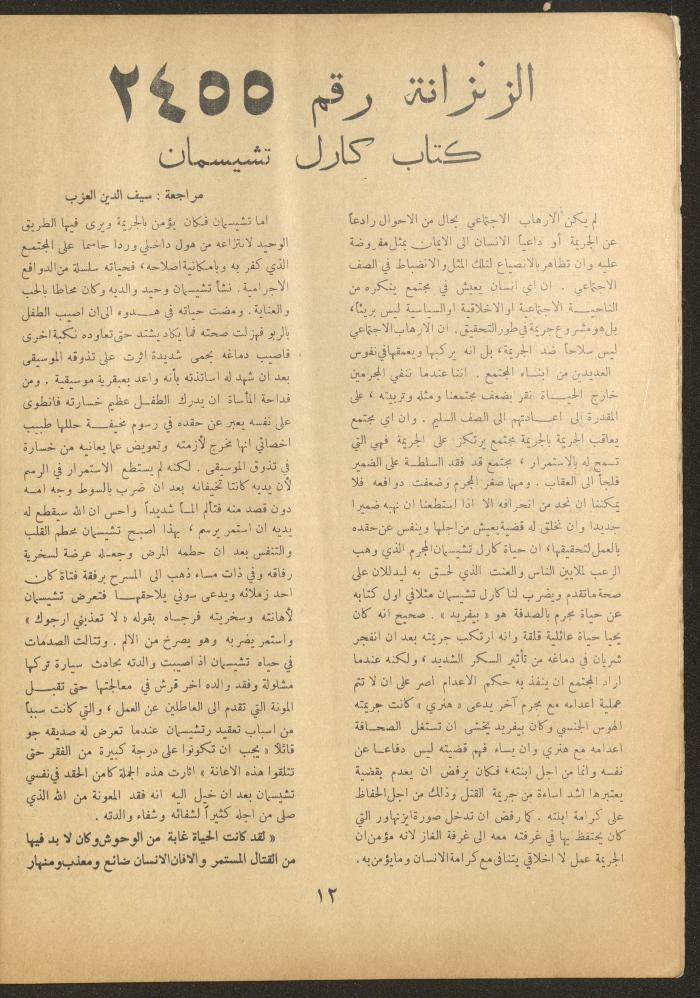 الزنزانة رقم ٢٤٥٥
كتاب كارل تشيسمان
مراجعة : سيف الدين العزب
لم يكن الارهاب الاجتماعي بحال من الاحوال رادعاً
عن الجريمة أو داعياً الانسان الى الايمان بمثل مفروضة
عليه وان تظاهر بالانصياع لتلك المثل والانضباط في الصف
الاجتماعي . ان اي انسان يعيش في مجتمع ينكره من
الناحيـــة الاجتماعية او الاخلاقية او السياسية ليس بريئاً،
بل هو مشروع جريمة في طور التحقيق. ان الارهاب الاجتماعي
ليس سلاحاً ضد الجريمة، بل انه يركيها ويعمقها في نفوس
العديدين من ابنـاء المجتمع . اننا عندما ننفي المجرمين
خارج الحيـاة نقر بضعف مجتمعنا ومثله وتربيته ، على
المقدرة الى اعـادتهم الى الصف السليم . وان اي مجتمع
يعاقب الجريمة بالجريمة مجتمع يرتكز على الجريمة فهي التي
تسمح له بالاستمرار ، مجتمع قد فقد السلطة على الضمير
فلجأ الى العقاب . ومهما صغر المجرم وضعفت دوافعه فلا
يمكننا ان نحد من انحرافه الا اذا استطعنا ان نهبه ضميرا
جديدا وان نخلق له قضية يعيش من اجلها وينفس عن حقده
بالعمل لتحقيقها، ان حياة كارل تشيسمان المجرم الذي وهب
الرعب لملايين الناس والعنت الذي لحق به ليدللان على
صحة ما تقدم ويضرب لنا كارل تشيسمان مثلا في اول كتابه
عن حياة مجرم بالصدفة هو « بيفريد » . صحيح انه كان
يحيا حياة عائلية قلقة وانه ارتكب جريمته بعد ان انفجر
شريان في دماغه من تأثير السكر الشديد ، ولكنه عندما
اراد المجتمع ان ينفذ به حكم الاعدام اصر على ان لا تتم
عملية اعدامه مع مجرم آخر يدعى « هنري » كانت جريمته
الهوس الجنسي وكان بيفريد يخشى ان تستغل الصحـافة
اعدامه مع هنري وان يساء فهم قضيته ليس دفاعـا عن
نفسه وانما من اجل ابنته، فكان يرفض ان يعدم بقضية
يعتبرها اشد اساءة من جريمة القتل وذلك من اجل الحفاظ
على كرامة ابنته . كما رفض ان تدخل صورة ايزنهاور التي
كان يحتفظ بها في غرفته معه الى غرفة الغاز لانه مؤمن ان
الجريمة عمل لا اخلاقي يتنافى مع كرامة الانسان وما يؤمن به.
اما تشيسمان فكان يؤمن بالجريمة ويرى فيها الطريق
الوحيد لانتزاعه من هول داخلي وردا حاسما على المجتمع
الذي كفر به وبامكانية اصلاحه، فحياته سلسلة من الدوافع
الاجرامية . نشأ تشيسمان وحيد والديه وكان محاطا بالحب
والعناية . ومضت حياته في هـدوء الى ان اصيب الطفل
بالربو فهزلت صحته فما يكاد يشتد حتى تعاوده نكبة اخرى
فاصيب دماغه بحمى شديدة اثرت على تذوقه الموسيقى
بعد ان شهد له اساتذته بأنه واعد بعبقرية موسيقية . ومن
فداحة المأساة ان يدرك الطفـل عظيم خسارته فانطوى
على نفسه يعبر عن حقده في رسوم مخيفـة حللها طبيب
اخصائي انها مخرج لأزمته وتعويض عما يعانيه من خسارة
في تذوق الموسيقى . لكنه لم يستطع الاستمرار في الرسم
لأن يديه كانتا تخيفانه بعد ان ضرب بالسوط وجه امـه
دون قصد منه فتألم المـاً شديداً واحس ان الله سيقطع له
يديه ان استمر يرسم ، بهذا اصبح تشيسمان محطم القلب
والتنفس بعد ان حطمه المرض وجعله عرضة لسخرية
رفاقه وفي ذات مساء ذهب الى المسرح برفقة فتاة كان
احد زملائه ويدعى سوني يلاحقهـا فتعرض تشيسمان
لأهانته وسخريته فرجـاه بقوله « لا تعذبني ارجوك »
واستمر يضربه وهو يصرخ من الالم . وتتالت الصدمات
في حياه تشيسمان اذ اصيبت والدته بحادث سيارة تركها
مشلولة وفقد والده اخر قرش في معالجتها حتى تقبـل
المونة التي تقدم الى العاطلين عن العمل ، والتي كانت سبباً
من اسباب تعقيد رتشيسمان عندما تعرض له صديقه جو
قائلاً « يجب ان تكونوا على درجة كبيرة من الفقر حتى
تتلقوا هذه الاعانة » اثارت هذه الجملة كامن الحقد في نفسي
تشيسمان بعد ان خيل اليه انه فقد المعونة من الله الذي
صلى من اجله كثيراً لشفائه وشفاء والدته .
« لقد كانت الحياة غابة من الوحوش وكان لا بد فيها
من القتال المستمر والا فان الانسان ضائع ومعذب ومنهار
١٢